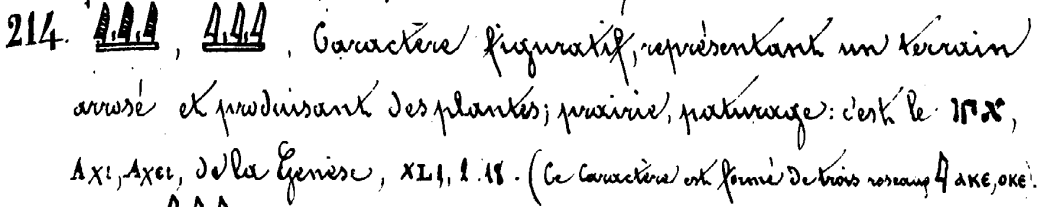 214. , . Caractère figuratif, représentant un terrain
arrosé et produisant des plantes; prairie, paturage: c'est le אחו,
Αχι, Αχει, de la Genèse, XLI, 2.18. (Ce caractère est formé de trois roseaux ⲁⲕⲉ, ⲟⲕⲉ.